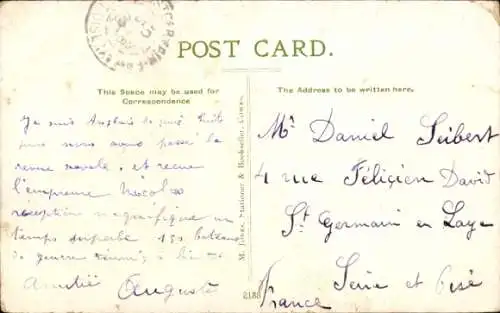 POST CARD.
This Space may be used for
Correspondence
The Address to be written here.
Je suis Anglais depuis
nous avons passé la
revue navale. et
l'empereur Nicolas
réception magnifique un
temps superbe 150 bateaux
de guerre
Amitié Auguste
M. Jones, Stationer & Bookseller, Cowes.
Mr Daniel Seibert
4 rue Félicien David
St Germain en Laye
Seine et Oise
France